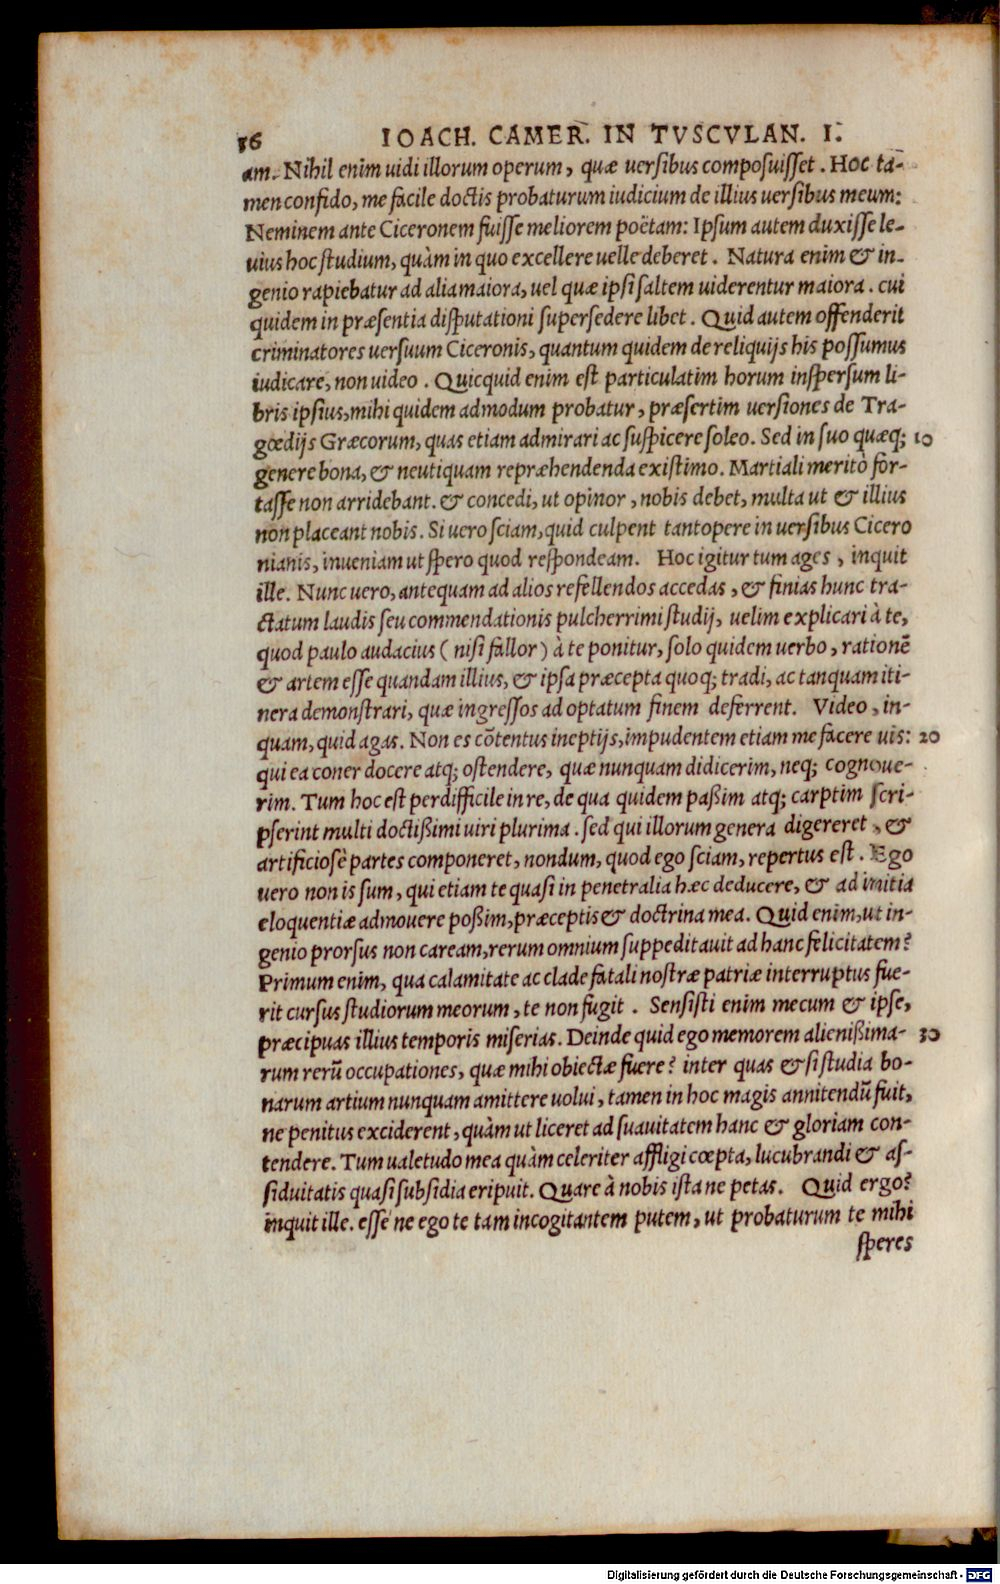 56 IOACH. CAMER. IN TVSCVLAN. I.
am. Nihil enim uidi illorum operum, quæ versibus composuisset. Hoc ta-
men confido, me facile doctis probaturum iudicium de illius versibus meum:
Neminem ante Ciceronem fuisse meliorem poëtam: Ipsum autem duxisse le-
vius hoc studium, quàm in quo excellere uelle deberet. Natura enim & in-
genio rapiebatur ad alia maiora, vel quæ ipsi saltem viderentur maiora. cui
quidem in præsentia disputationi supersedere libet. Quid autem offenderit
criminatores uersuum Ciceronis, quantum quidem de reliquijs his possumus
iudicare, non video. Quicquid enim est particulatim horum inspersum li-
bris ipsius, mihi quidem admodum probatur, præsertim versiones de Tra-
gœdijs Græcorum, quas etiam admirari ac suspicere soleo. Sed in suo quæq; 10
genere bona, & neutiquam repræhendenda existimo. Martiali meritò for-
tasse non arridebant. & concedi, ut opinor, nobis debet, multa ut & illius
non placeant nobis. Si vero sciam, quid culpent tantopere in versibus Cicero
nianis, inueniam ut spero quod respondeam. Hoc igitur tum ages, inquit
ille. Nunc vero, antequam ad alios refellendos accedas, & finias hunc tra-
ctatum laudis seu commendationis pulcherrimi studij, uelim explicari à te,
quod paulo audacius (nisi fallor) à te ponitur, solo quidem uerbo, rationē
& artem esse quandam illius, & ipsa præcepta quoq; tradi, ac tanquam iti-
nera demonstrari, quæ ingressos ad optatum finem deferrent. Video, in-
quam, quid agas. Non es cōtentus ineptijs, impudentem etiam me facere uis: 20
qui ea coner docere atq; ostendere, quæ nunquam didicerim, neq; cognoue-
rim. Tum hoc est perdifficile in re, de qua quidem paßim atq; carptim scri-
pserint multi doctißimi uiri plurima. sed qui illorum genera digereret, &
artificiosè partes componeret, nondum, quod ego sciam, repertus est. Ego
vero non is sum, qui etiam te quasi in penetralia hæc deducere, & ad initia
eloquentiæ admouere poßim, præceptis & doctrina mea. Quid enim, ut in-
genio prorsus non caream, rerum omnium suppeditauit ad hanc felicitatem?
Primum enim, qua calamitate ac clade fatali nostræ patriæ interruptus fue-
rit cursus studiorum meorum, te non fugit. Sensisti enim mecum & ipse,
præcipuas illius temporis miserias. Deinde quid ego memorem alienißima- 30
rum rerū occupationes, quæ mihi obiectæ fuere? inter quas & si studia bo-
narum artium nunquam amittere uolui, tamen in hoc magis annitendū fuit,
ne penitus exciderent, quàm ut liceret ad suauitatem hanc & gloriam con-
tendere. Tum ualetudo mea quàm celeriter affligi cœpta, lucubrandi & as-
siduitatis quasi subsidia eripuit. Quare à nobis ista ne petas. Quid ergo?
inquit ille. esse ne ego te tam incogitantem putem, ut probaturum te mihi
speres
Digitalisierung gefördert durch die Deutsche Forschungsgemeinschaft - DFG